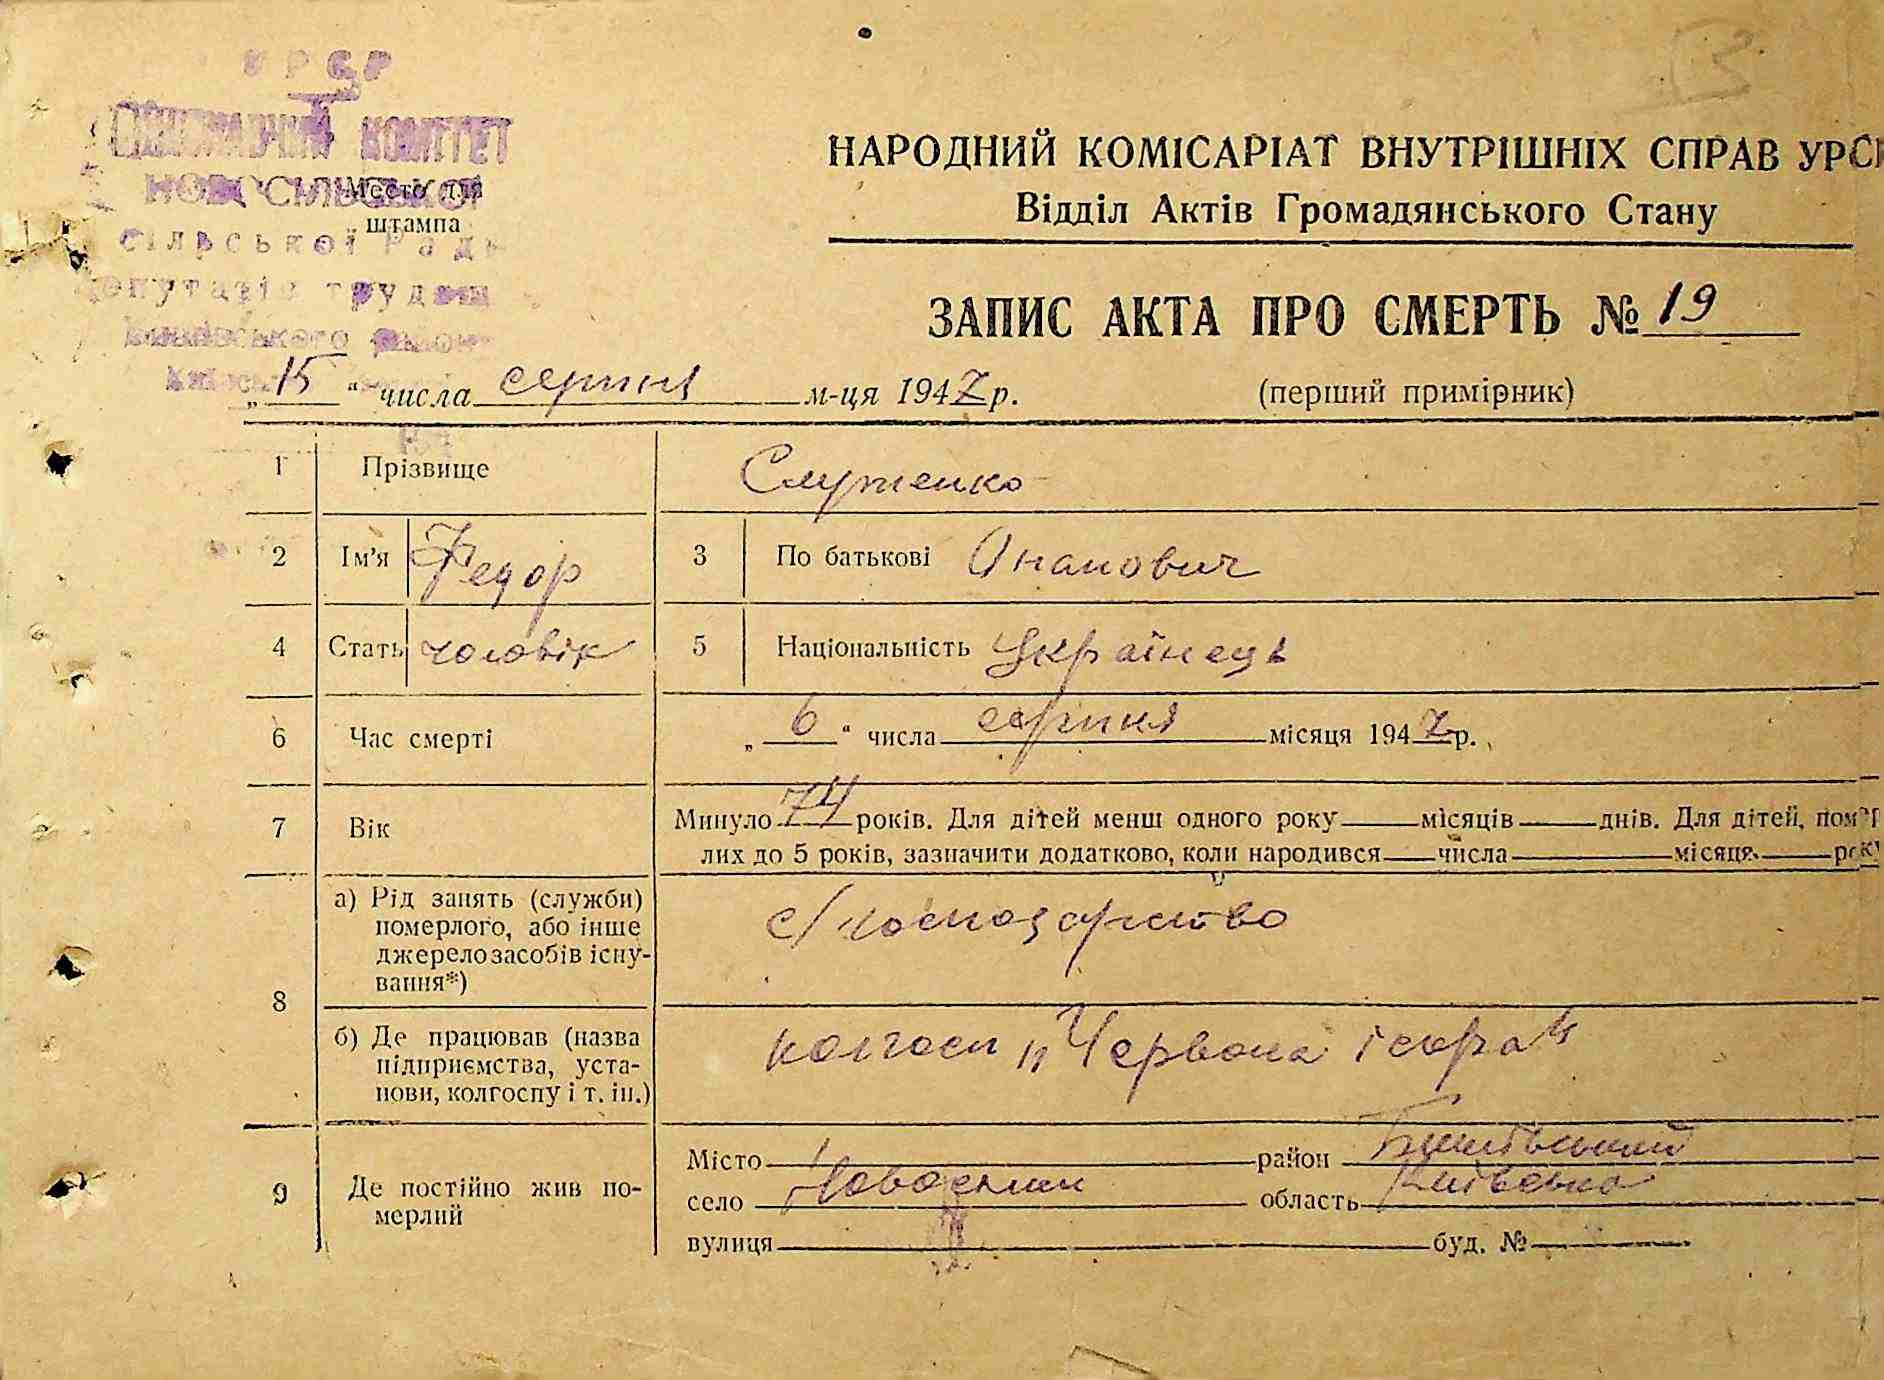 УРСР
ВИКОНАВЧИЙ КОМІТЕТ
НОВОСІЛЬСЬКОЇ
Место для
штампа
сільської Ради
депутатів трудящ
НАРОДНИЙ КОМІСАРІАТ ВНУТРІШНІХ СПРАВ УРСР
Відділ Актів Громадянського Стану
ЗАПИС АКТА ПРО СМЕРТЬ № 19
„ 15 “ числа серпня м-ця 1947 р.
(перший примірник)
1 Прізвище
2 Ім'я Федор 3 По батькові
4 Стать чоловік 5 Національність Українець
6 Час смерті „ 6 “ числа серпня місяця 1947 р.
7 Вік Минуло 74 років. Для дітей менш одного року місяців днів. Для дітей, пом
лих до 5 років, зазначити додатково, коли народився числа місяця року
8 а) Рід занять (служби)
померлого, або інше
джерело засобів існу-
вання*)
с/господарство
б) Де працював (назва
підприємства, уста-
нови, колгоспу і т. ін.)
колгосп „Червона
9 Де постійно жив по-
мерлий
Місто район
село область Київська
вулиця буд. №